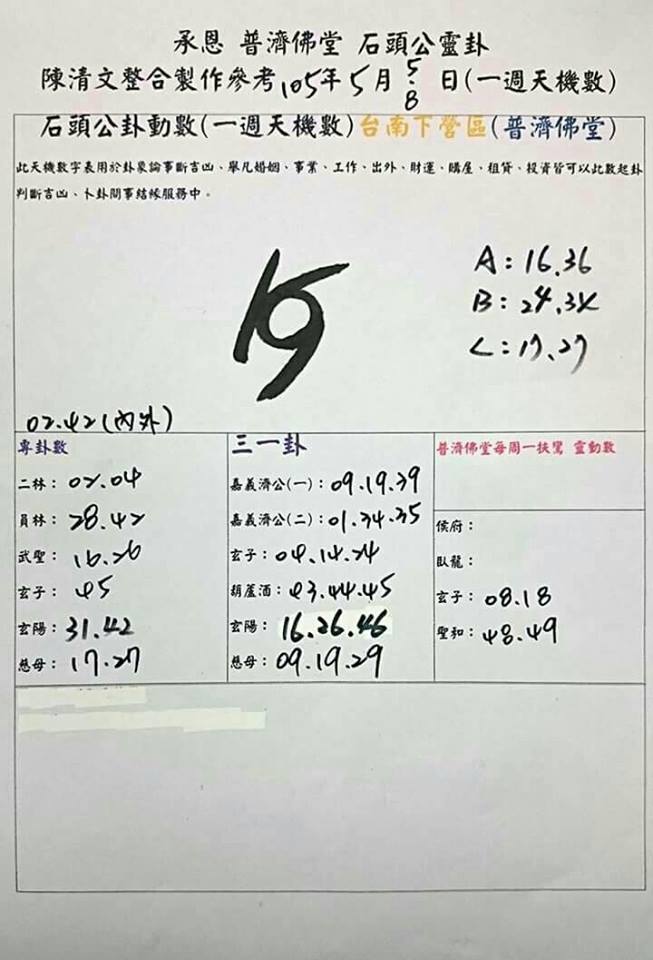 承恩 普濟佛堂 石頭公靈卦
陳清文整合製作參考105年5月5.8日(一週天機數)
石頭公卦動數(一週天機數)台南下營區(普濟佛堂)
此天機數字表用於卦象論事斷吉凶、舉凡婚姻、事業、工作、出外、財運、購屋、租賃、投資皆可以此數起卦
判斷吉凶、卜卦問事結緣服務中。
A:16.36
B:24.34
C:17.27
02.42(內外)
專卦數
二林:02.04
員林:28.42
武聖:16.26
玄子:45
玄陽:31.42
慈母:17.27
三一卦
嘉義濟公(一):09.19.39
嘉義濟公(二):01.34.35
玄子:04.14.24
葫蘆酒:43.44.45
玄陽:16.26.46
慈母:09.19.29
普濟佛堂每周一扶鸞 靈動數
侯府:
臥龍:
玄子:08.18
聖和:48.49